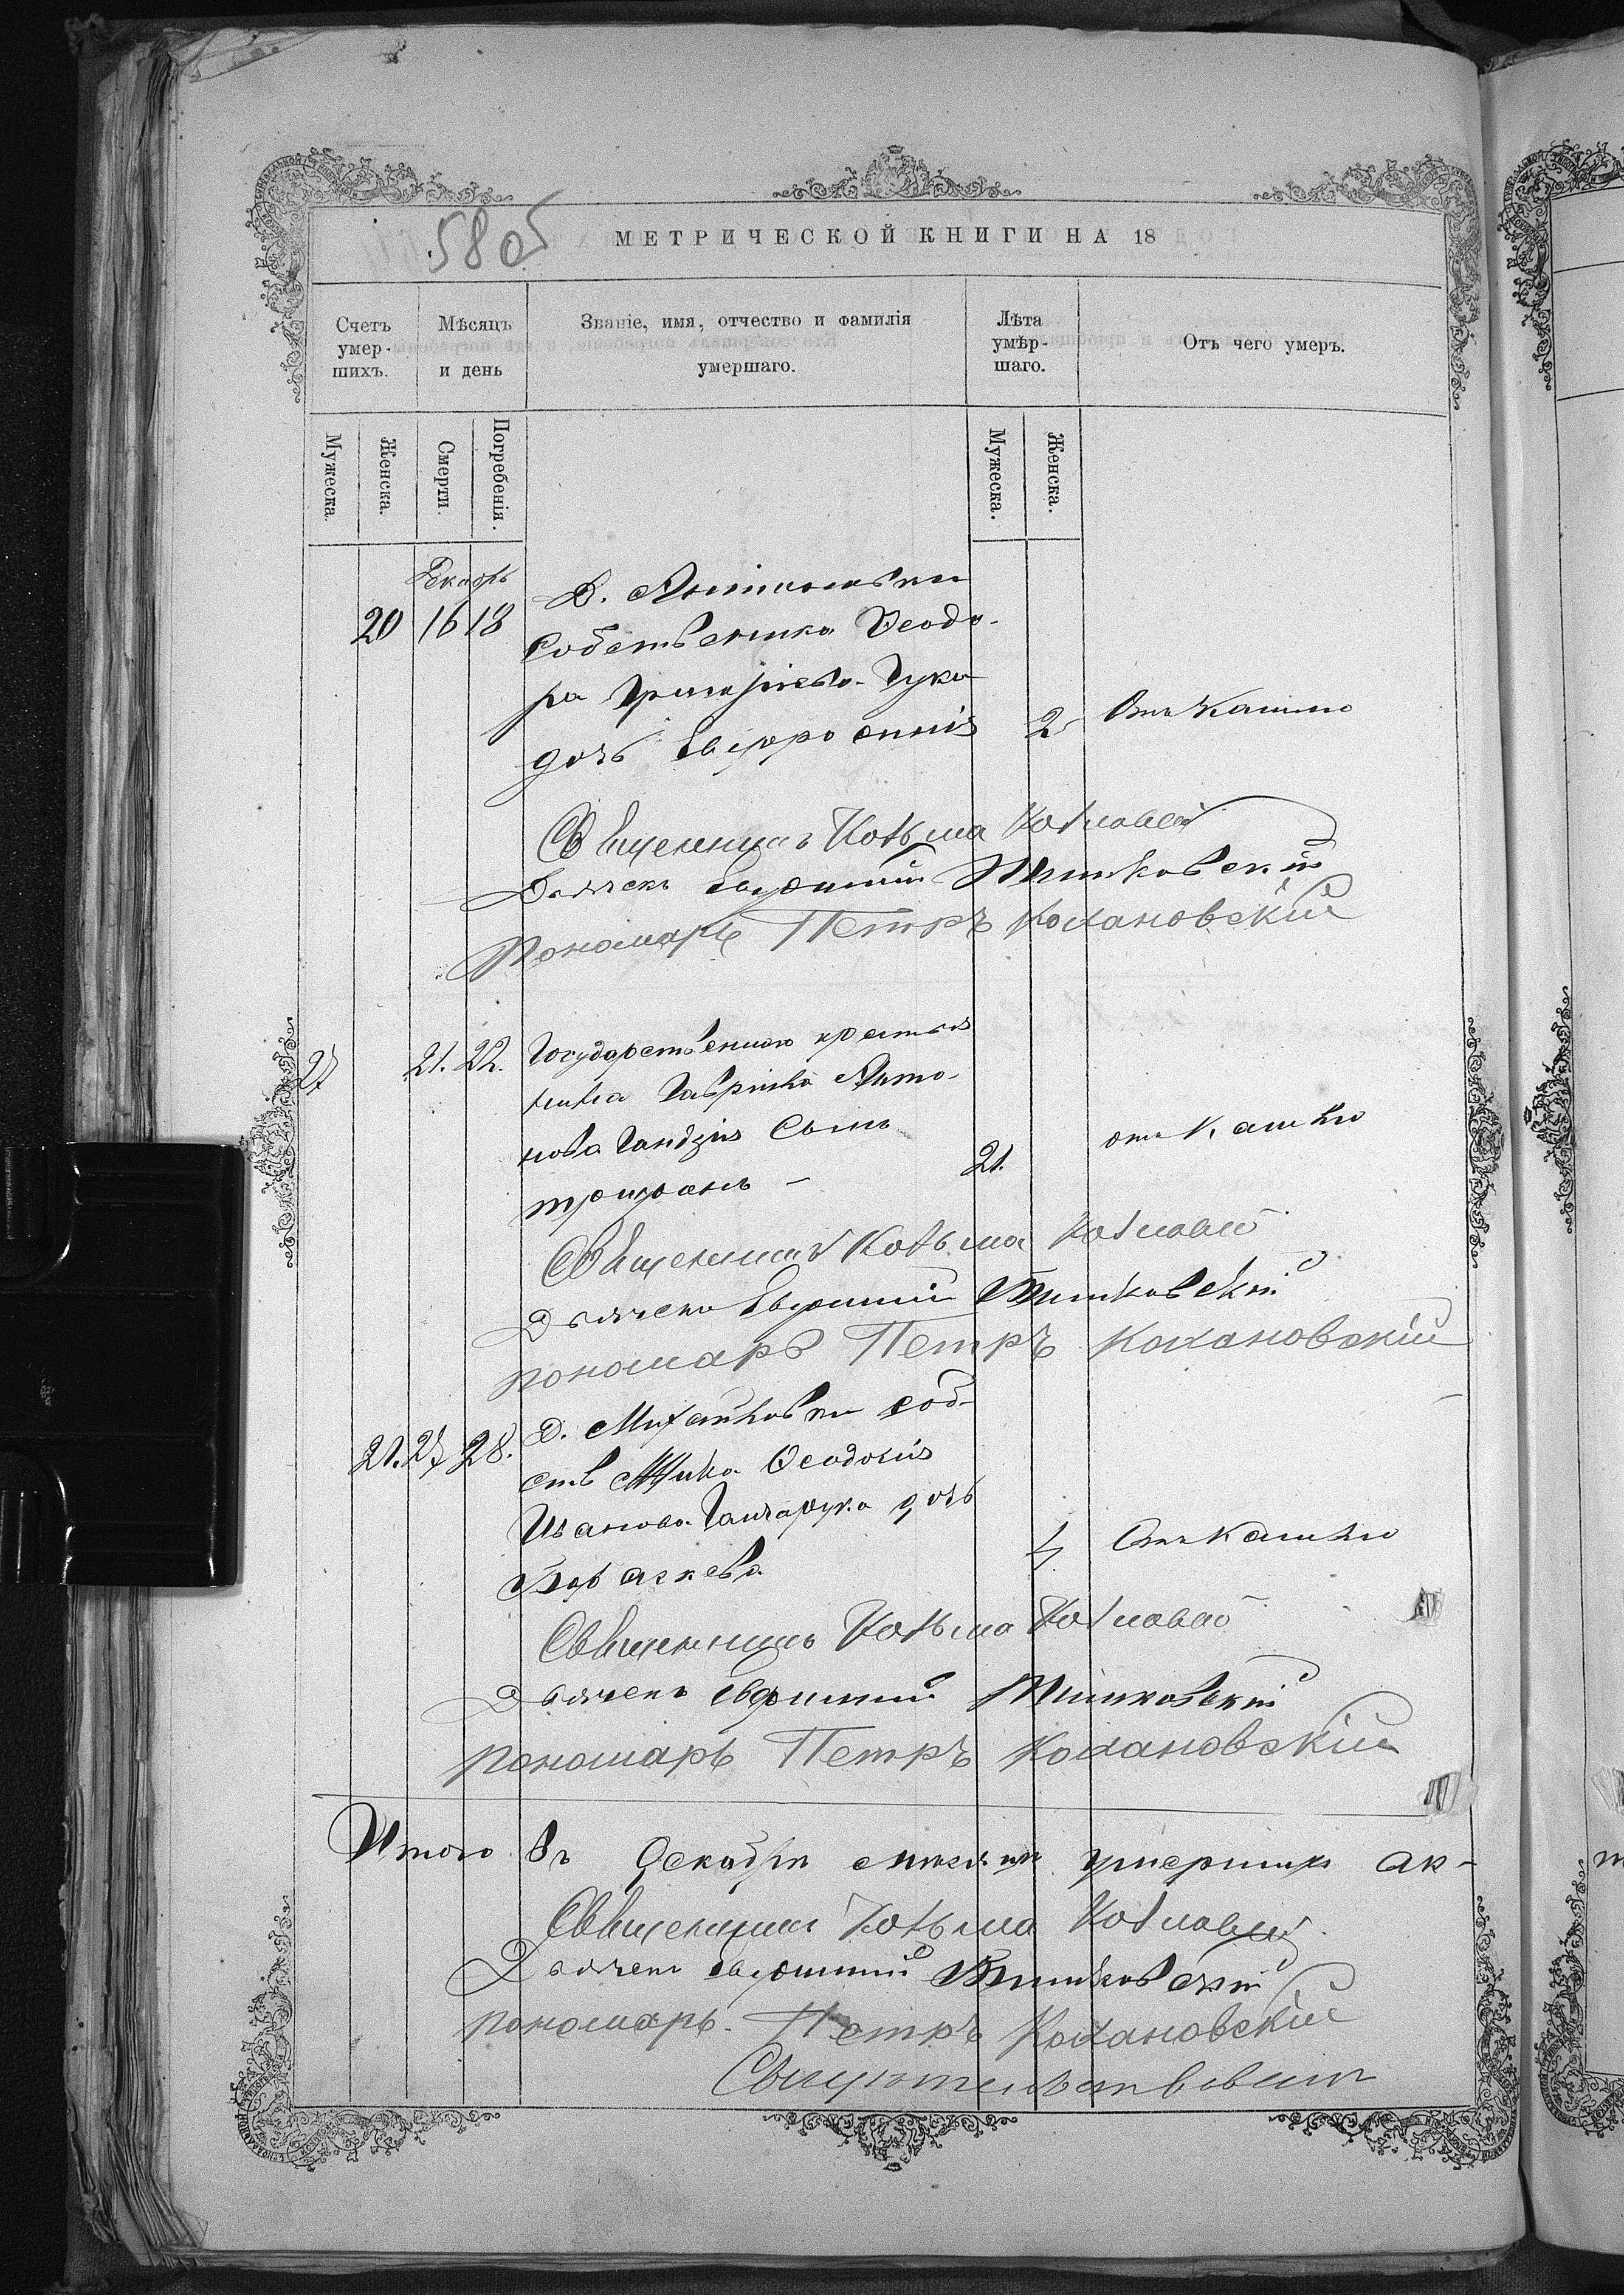 580
МЕТРИЧЕСКОЙ КНИГИ НА 18
Счетъ умер-шихъ.
Мѣсяцъ и день
Званіе, имя, отчество и фамилія умершаго.
Лѣта умѣр-шаго.
Отъ чего умеръ.
Мужеска.
Женска.
Смерти.
Погребенія.
Мужеска.
Женска.
Декабрь
20 16 18 Д.
Собственника Ѳеодо-
ра Григоріева Гука
дочь Евфросинія 2 Отъ кашлю
Священникъ Козьма
Дьячекъ Евфимій
Пономарь Петръ Кохановскій
27 21. 22. Государственного крестья
нина Гавріила Анто-
нова Гандзія Сынъ
Трифонъ - 21. отъ кашлю
Священникъ Козьма
Дьячекъ Евфимій
пономарь Петръ Кохановскій
21. 27 28. Д. Михайловки соб-
ств Ѳеодосія
Иванова Гончарука дочь
Параскева 4 Отъ кашлю
Священникъ Козьма
Дьячекъ Евфимій
пономарь Петръ Кохановскій
Итого въ Декабрѣ мѣсяцѣ умершихъ
Священникъ Козьма
Дьячекъ Евфимій
пономарь. Петръ Кохановскій